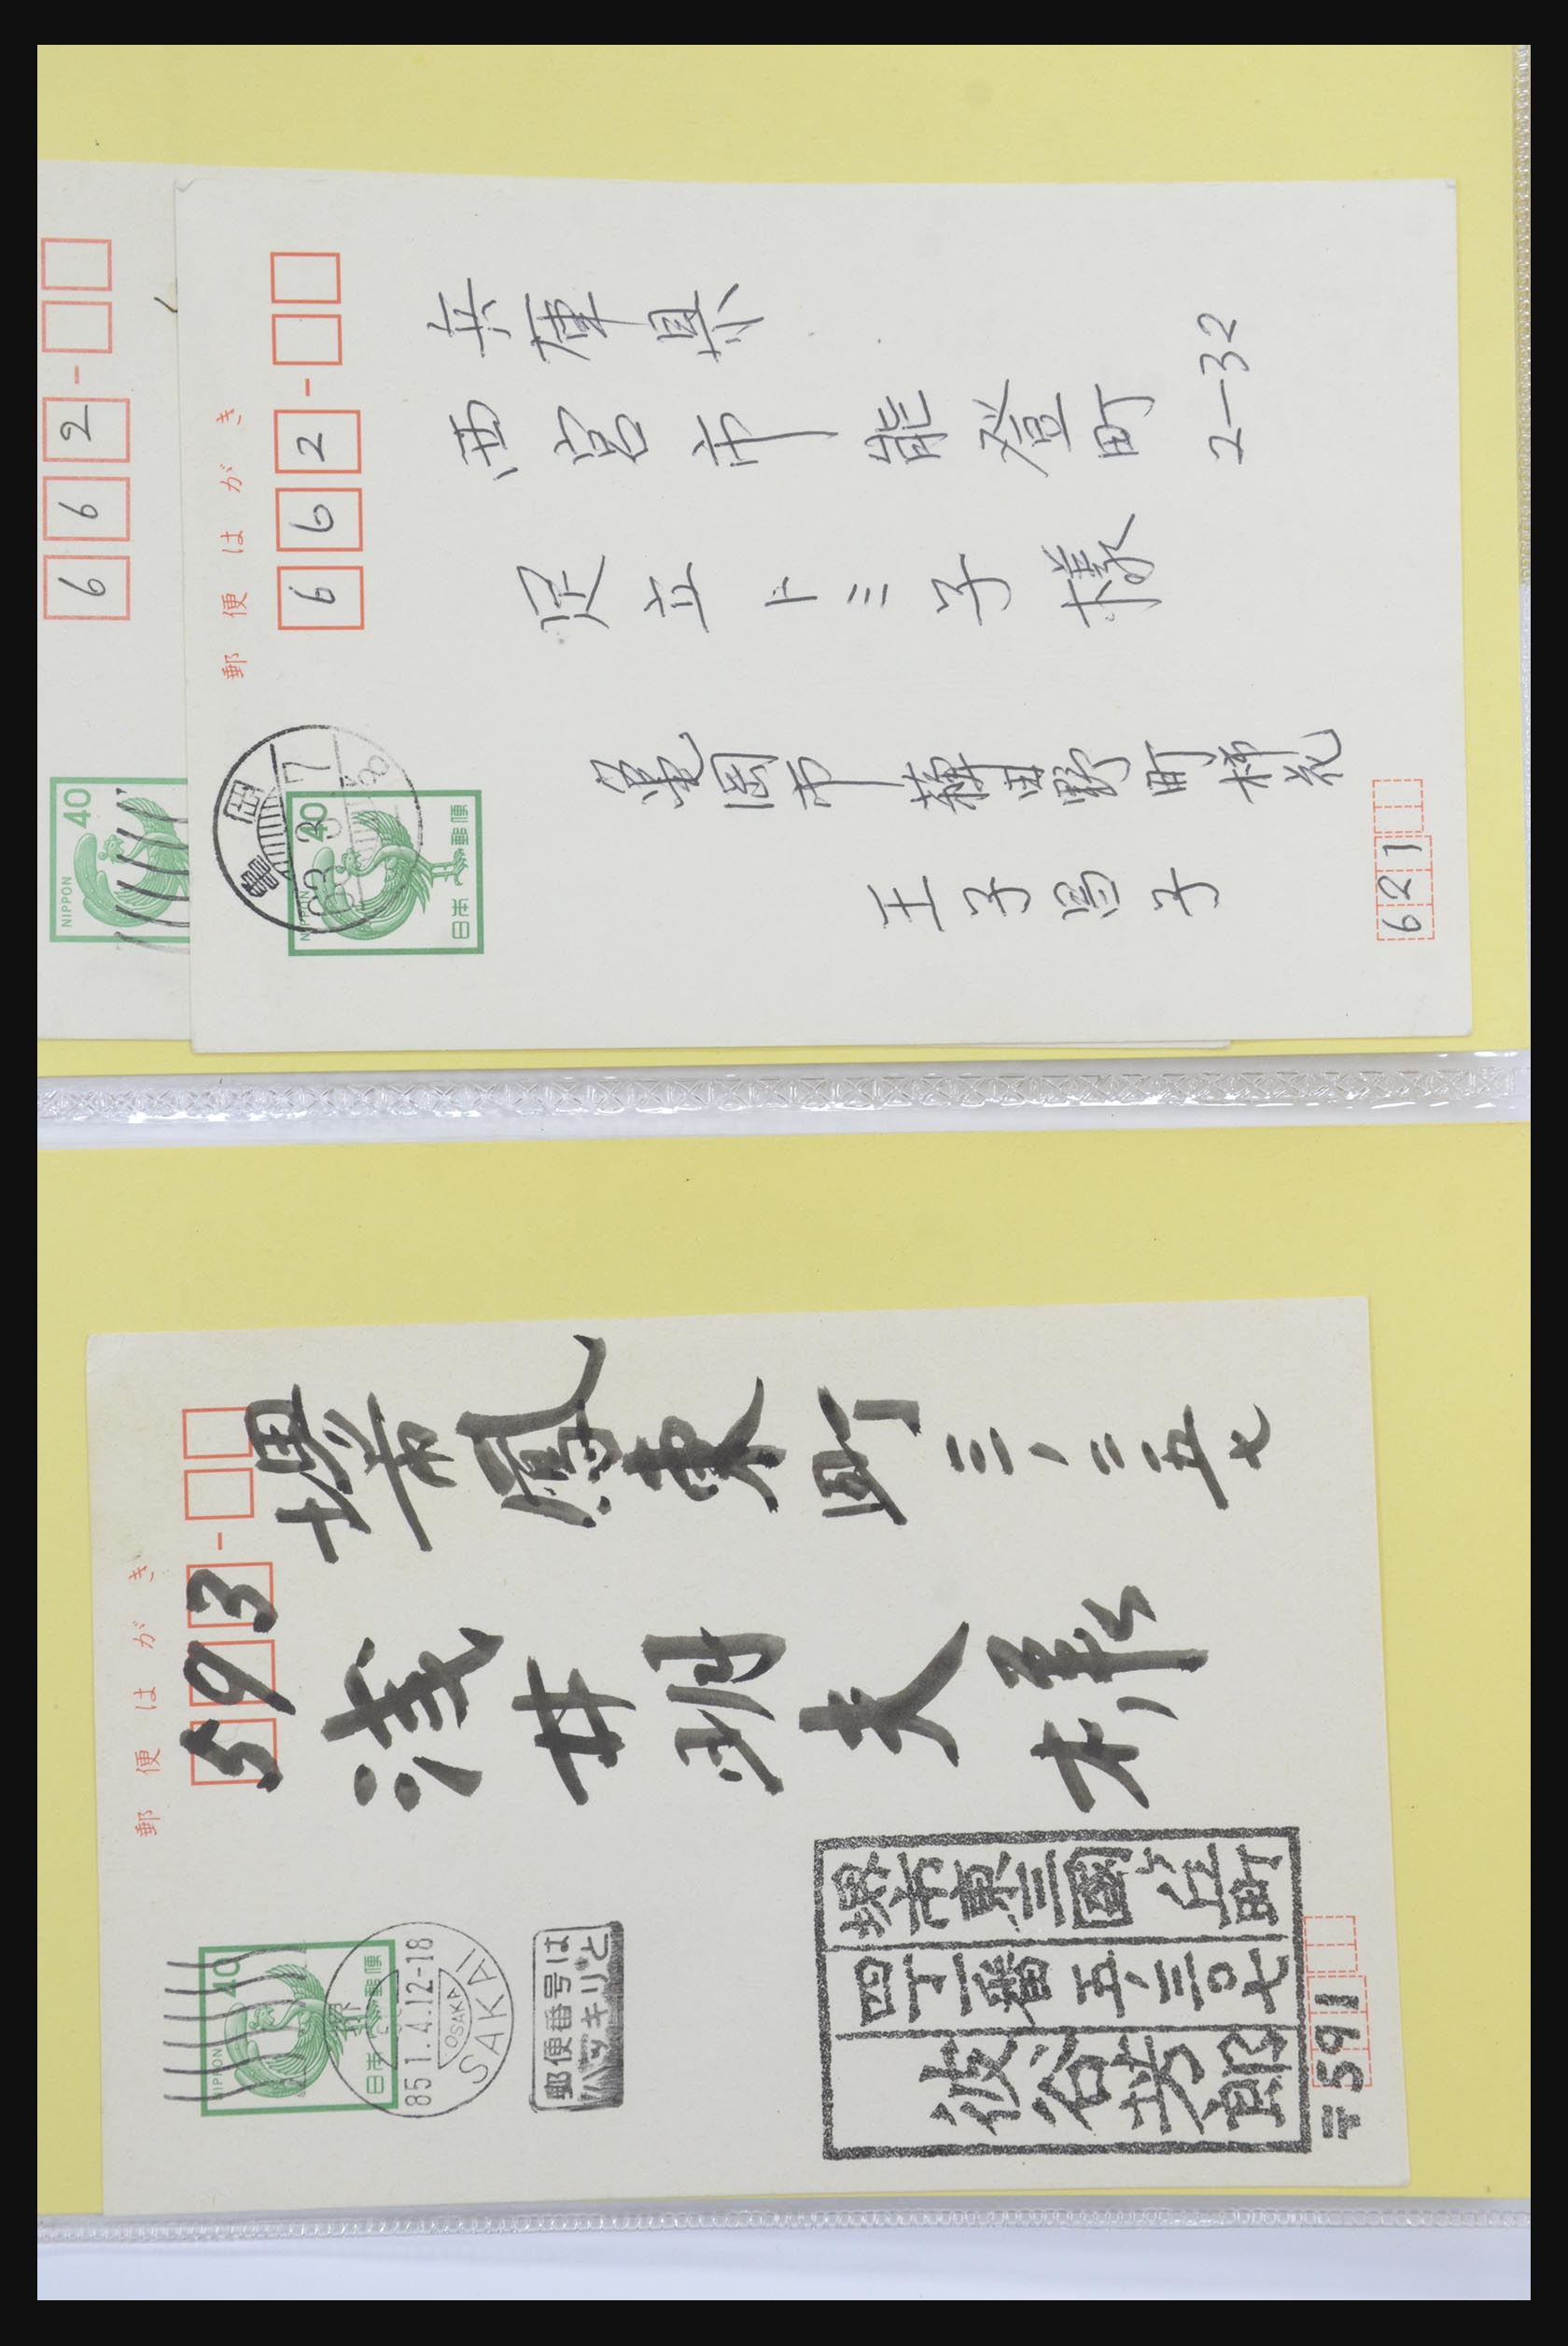 662-
NIPPON
40
郵便はがき
662-
兵庫県
西宮市能登町2-32
足立トミ子様
亀岡市薭田野町柿花
王子
子
621
亀岡
NIPPON
40
日本郵便
郵便はがき
593-
堺市鳳東町三ノ二五七
浅井明夫様
NIPPON
40
日本郵便
85 1.4.12-18
OSAKA
SAKAI
郵便番号は
ハッキリと
堺市東三國ヶ丘町
四丁番五ノ三〇七
谷芳郎
〒591